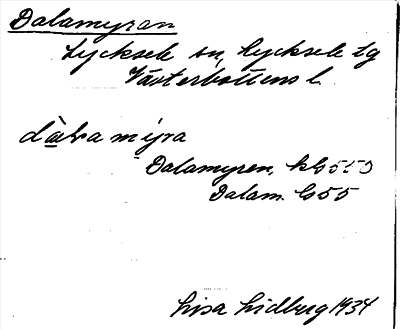 Dalamyren
Lycksele sn, Lycksele tg
Västerbottens l.
mỳra
Dalamyren,
Dalam. Gs55
Lisa Lidberg 1934